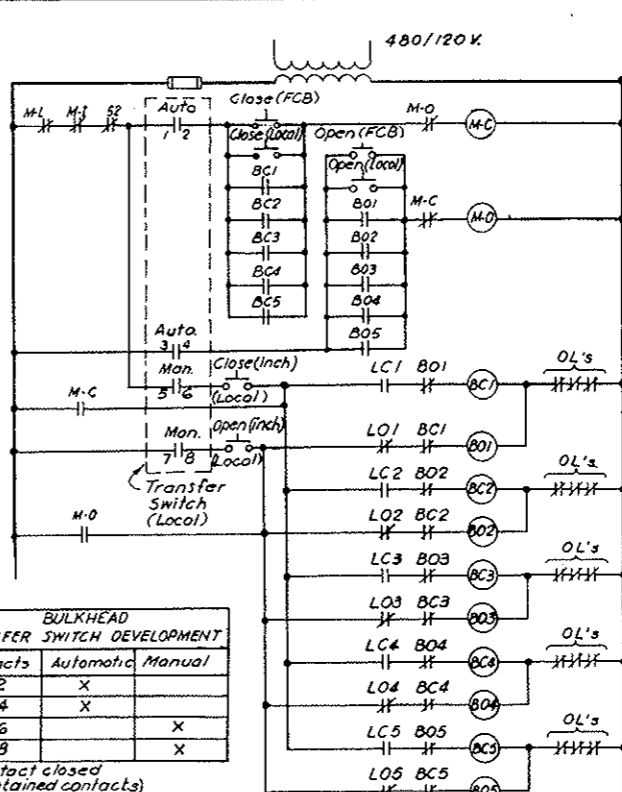 480/120 V.
M-L M-I S2
Auto
1 2
Close (FCB)
Close (Local)
Open (FCB)
Open (Local)
M-O
M-C
BC1
BC2
BC3
BC4
BC5
BO1
BO2
BO3
BO4
BO5
M-C
M-O
Auto.
3 4
Man.
5 6
Close (Inch)
(Local)
M-C
Man.
7 8
Open (inch)
(Local)
Transfer
Switch
(Local)
M-O
LC1 BO1 BC1 OL's
LO1 BC1 BO1
LC2 BO2 BC2 OL's
LO2 BC2 BO2
LC3 BO3 BC3 OL's
LO3 BC3 BO3
LC4 BO4 BC4 OL's
LO4 BC4 BO4
LC5 BO5 BC5 OL's
LO5 BC5 BO5
BULKHEAD
FER SWITCH DEVELOPMENT
acts Automatic Manual
2 X
4 X
6 X
8 X
tact closed
tained contacts)